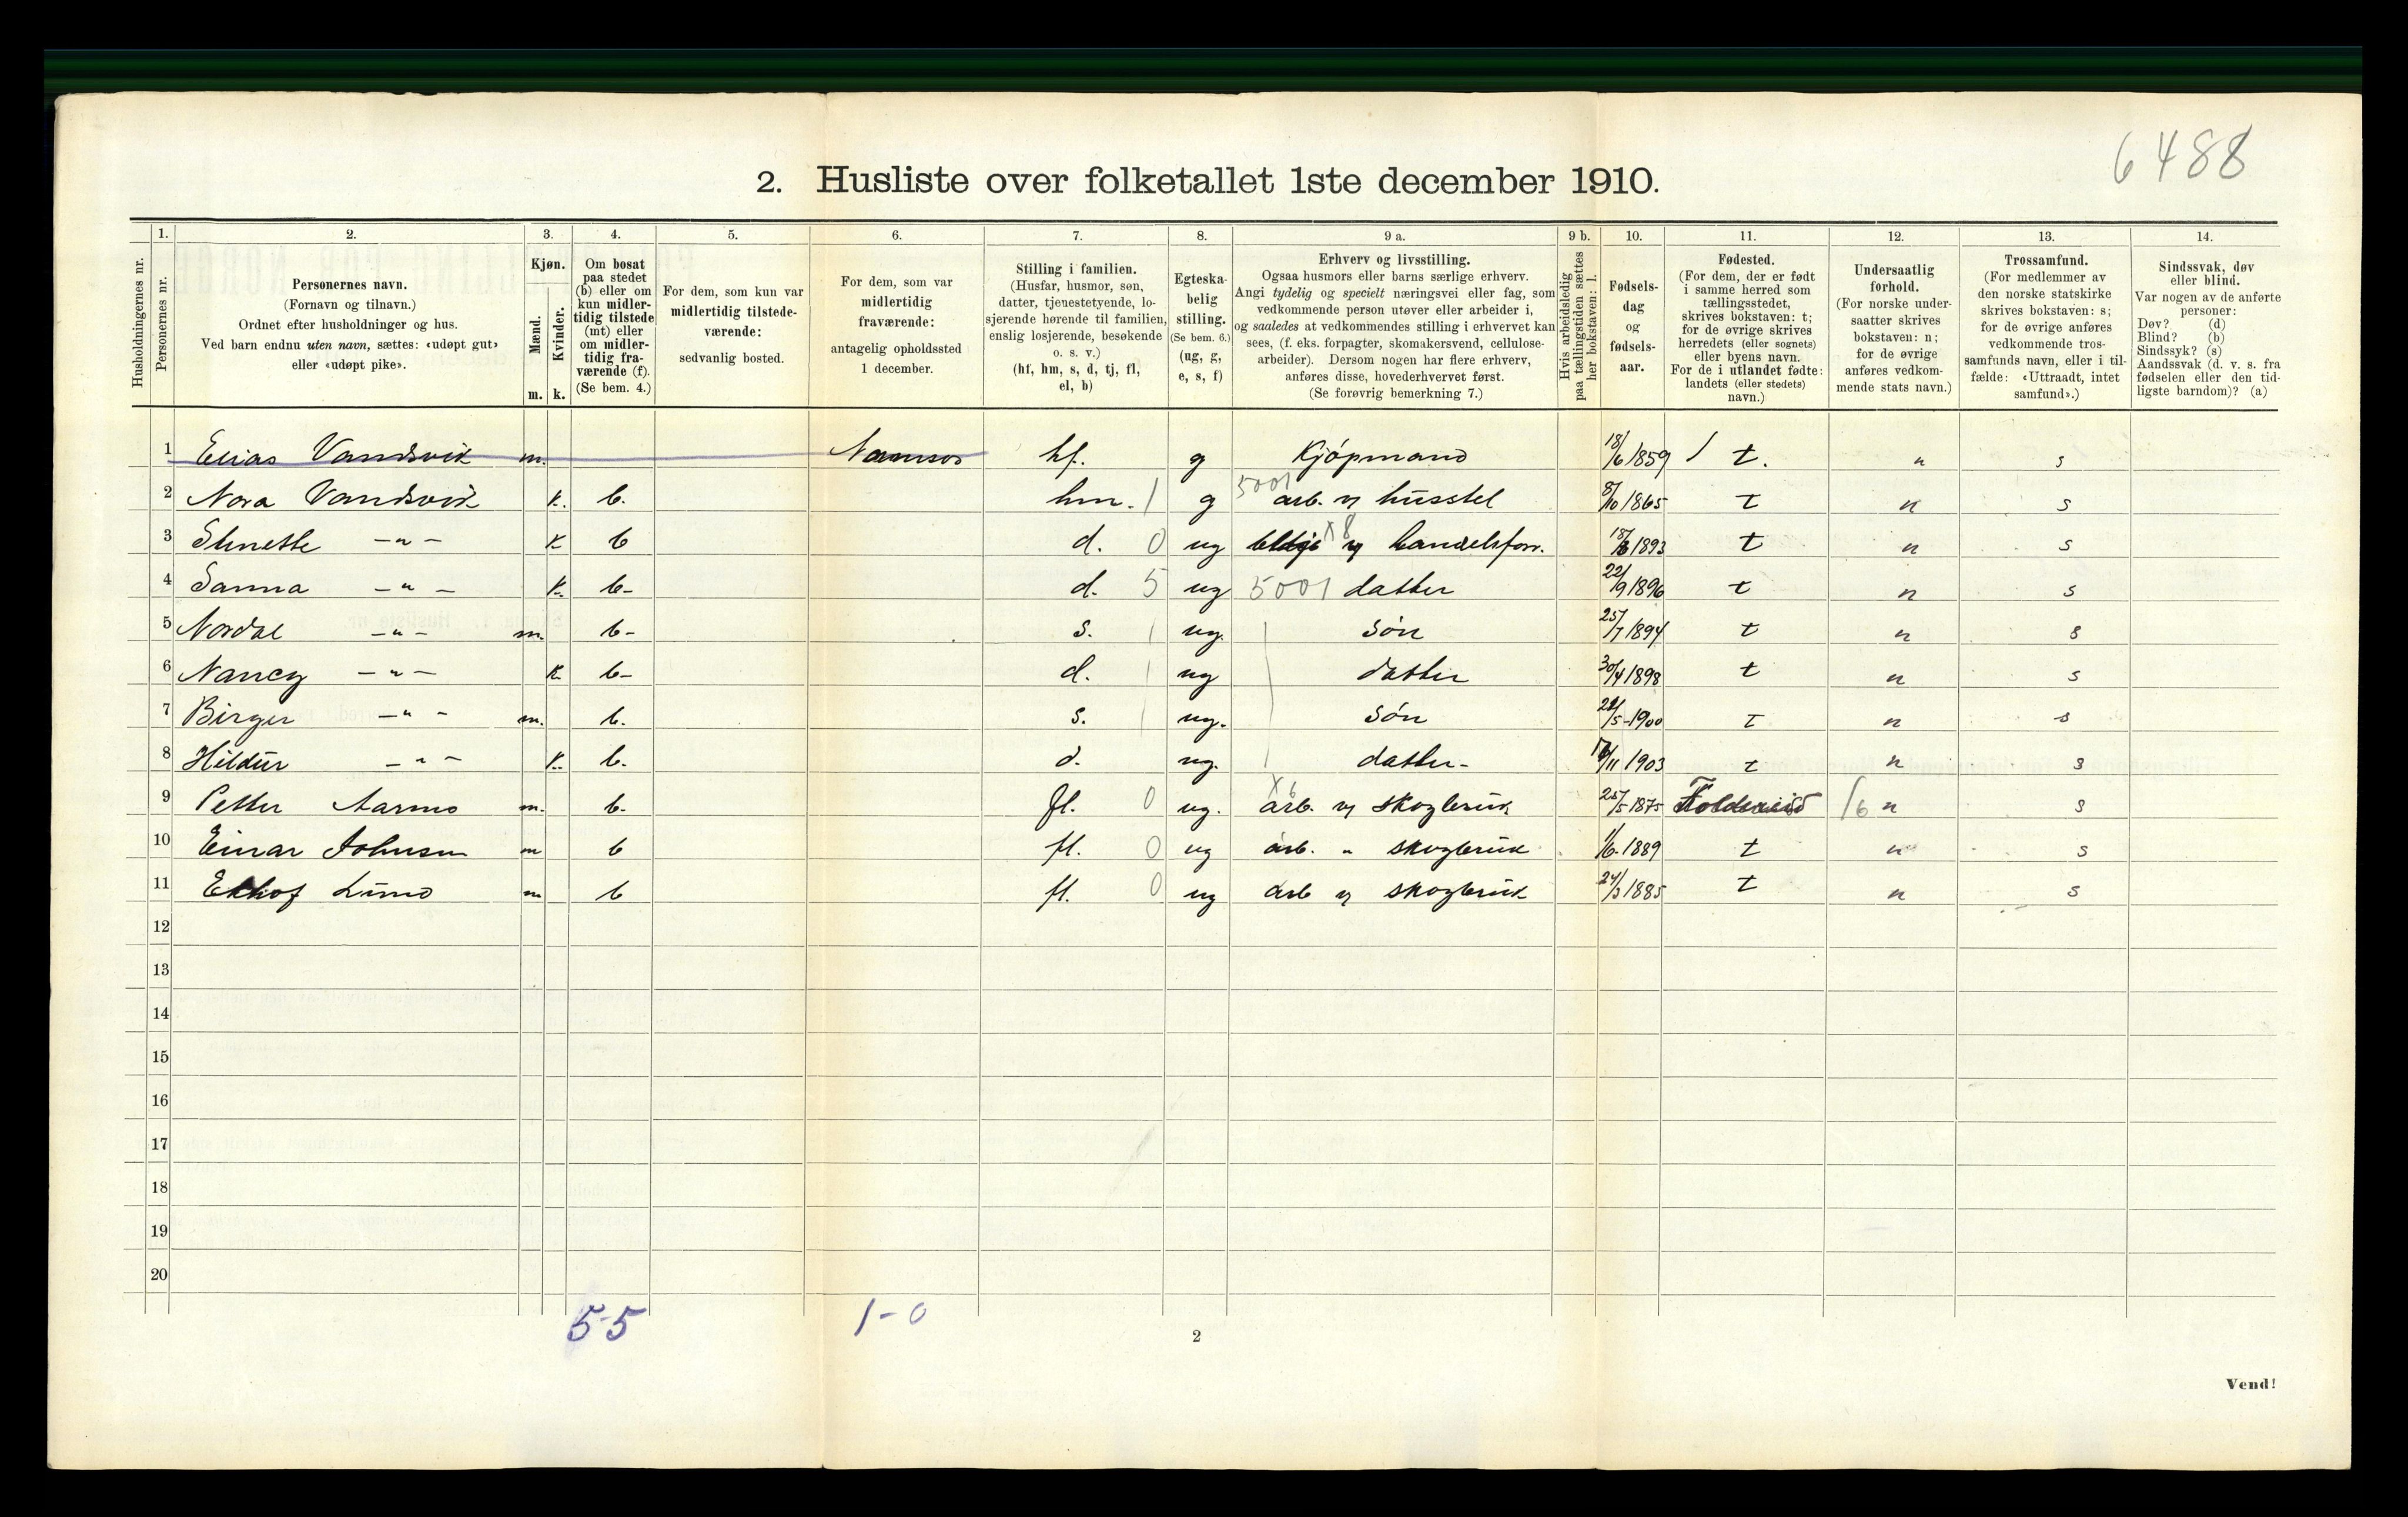 6488
2. Husliste over folketallet 1ste december 1910.
1. 2. 3. 4. 5. 6. 7. 8. 9 a. 9 b. 10. 11. 12. 13. 14.
Husholdningernes nr.
Personernes nr.
Personernes navn.
(Fornavn og tilnavn.)
Ordnet efter husholdninger og hus.
Ved barn endnu uten navn, sættes: «udøpt gut»
eller «udøpt pike».
Kjøn.
Mænd.
Kvinder.
m. k.
Om bosat
paa stedet
(b) eller om
kun midler-
tidig tilstede
(mt) eller
om midler-
tidig fra-
værende (f).
(Se bem. 4.)
For dem, som kun var
midlertidig tilstede-
værende:
sedvanlig bosted.
For dem, som var
midlertidig
fraværende:
antagelig opholdssted
1 december.
Stilling i familien.
(Husfar, husmor, søn,
datter, tjenestetyende, lo-
sjerende hørende til familien,
enslig losjerende, besøkende
o. s. v.)
(hf, hm, s, d, tj, fl,
el, b)
Egteska-
belig
stilling.
(Se bem. 6.)
(ug, g,
e, s, f)
Erhverv og livsstilling.
Ogsaa husmors eller barns særlige erhverv.
Angi tydelig og specielt næringsvei eller fag, som
vedkommende person utøver eller arbeider i,
og saaledes at vedkommendes stilling i erhvervet kan
sees, (f. eks. forpagter, skomakersvend, cellulose-
arbeider). Dersom nogen har flere erhverv,
anføres disse, hovederhvervet først.
(Se forøvrig bemerkning 7.)
Hvis arbeidsledig
paa tællingstiden sættes
her bokstaven: l.
Fødsels-
dag
og
fødsels-
aar.
Fødested.
(For dem, der er født
i samme herred som
tællingsstedet,
skrives bokstaven: t;
for de øvrige skrives
herredets (eller sognets)
eller byens navn.
For de i utlandet fødte:
landets (eller stedets)
navn.)
Undersaatlig
forhold.
(For norske under-
saatter skrives
bokstaven: n;
for de øvrige
anføres vedkom-
mende stats navn.)
Trossamfund.
(For medlemmer av
den norske statskirke
skrives bokstaven: s;
for de øvrige anføres
vedkommende tros-
samfunds navn, eller i til-
fælde: «Uttraadt, intet
samfund».)
Sindssvak, døv
eller blind.
Var nogen av de anførte
personer:
Døv? (d)
Blind? (b)
Sindssyk? (s)
Aandssvak (d. v. s. fra
fødselen eller den tid-
ligste barndom)? (a)
1 Elias Vandsvik m. Namsos hf. g Kjøpmand 18/6 1859 / t. n s
2 Nora Vandsvik k. b. hm. 1 g 5001 arb. v husstel 8/10 1865 t n s
3 -"- k b d. 0 ug x8 v handelsforr. 1893 t n s
4 Sanna -"- k. b- d. 5 ug 5001 datter 22/9 1896 t n s
5 Nordal -"- m. b- s. 1 ug. søn 25/7 1894 t n s
6 Nancy -"- k. b- d. 1 ug datter 30/4 1898 t n s
7 Birger -"- m. b. s. 1 ug. søn /5-1900 t n s
8 Hildur -"- k. b. d. ug. datter- /11 1903 t n s
9 Petter Aarmo m. b. fl. 0 ug. x6 arb. v skogbruk 25/5 1875 Foldereid 16 n s
10 Einar Johnsen m b fl. 0 ug arb. " skogbruk 1/6-1889 t n s
11 m b fl. 0 ug arb v skogbruk 24/3 1885 t n s
12
13
14
15
16
17
18
19
20
5-5 1-0
2
Vend!